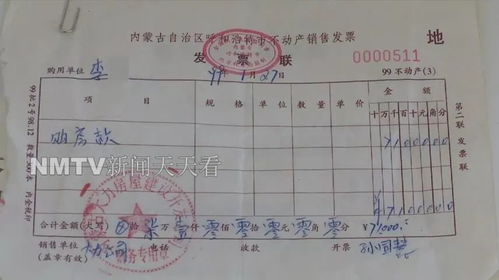 内蒙古自治区呼和浩特市不动产销售发票
地
发票联
0000511
购用单位 李
99年1月27日
99不动产(3)
项目 规格 单位 数量 单价 金额
十万千百十元角分
购房款
7100000
第二联 发票联
NMTV新闻天天看
合计金额(大写) 拾柒万壹仟零佰零拾零元零角零分 ¥71000.
销售单位(盖章有效)
电话 收款 开票
财务专用章